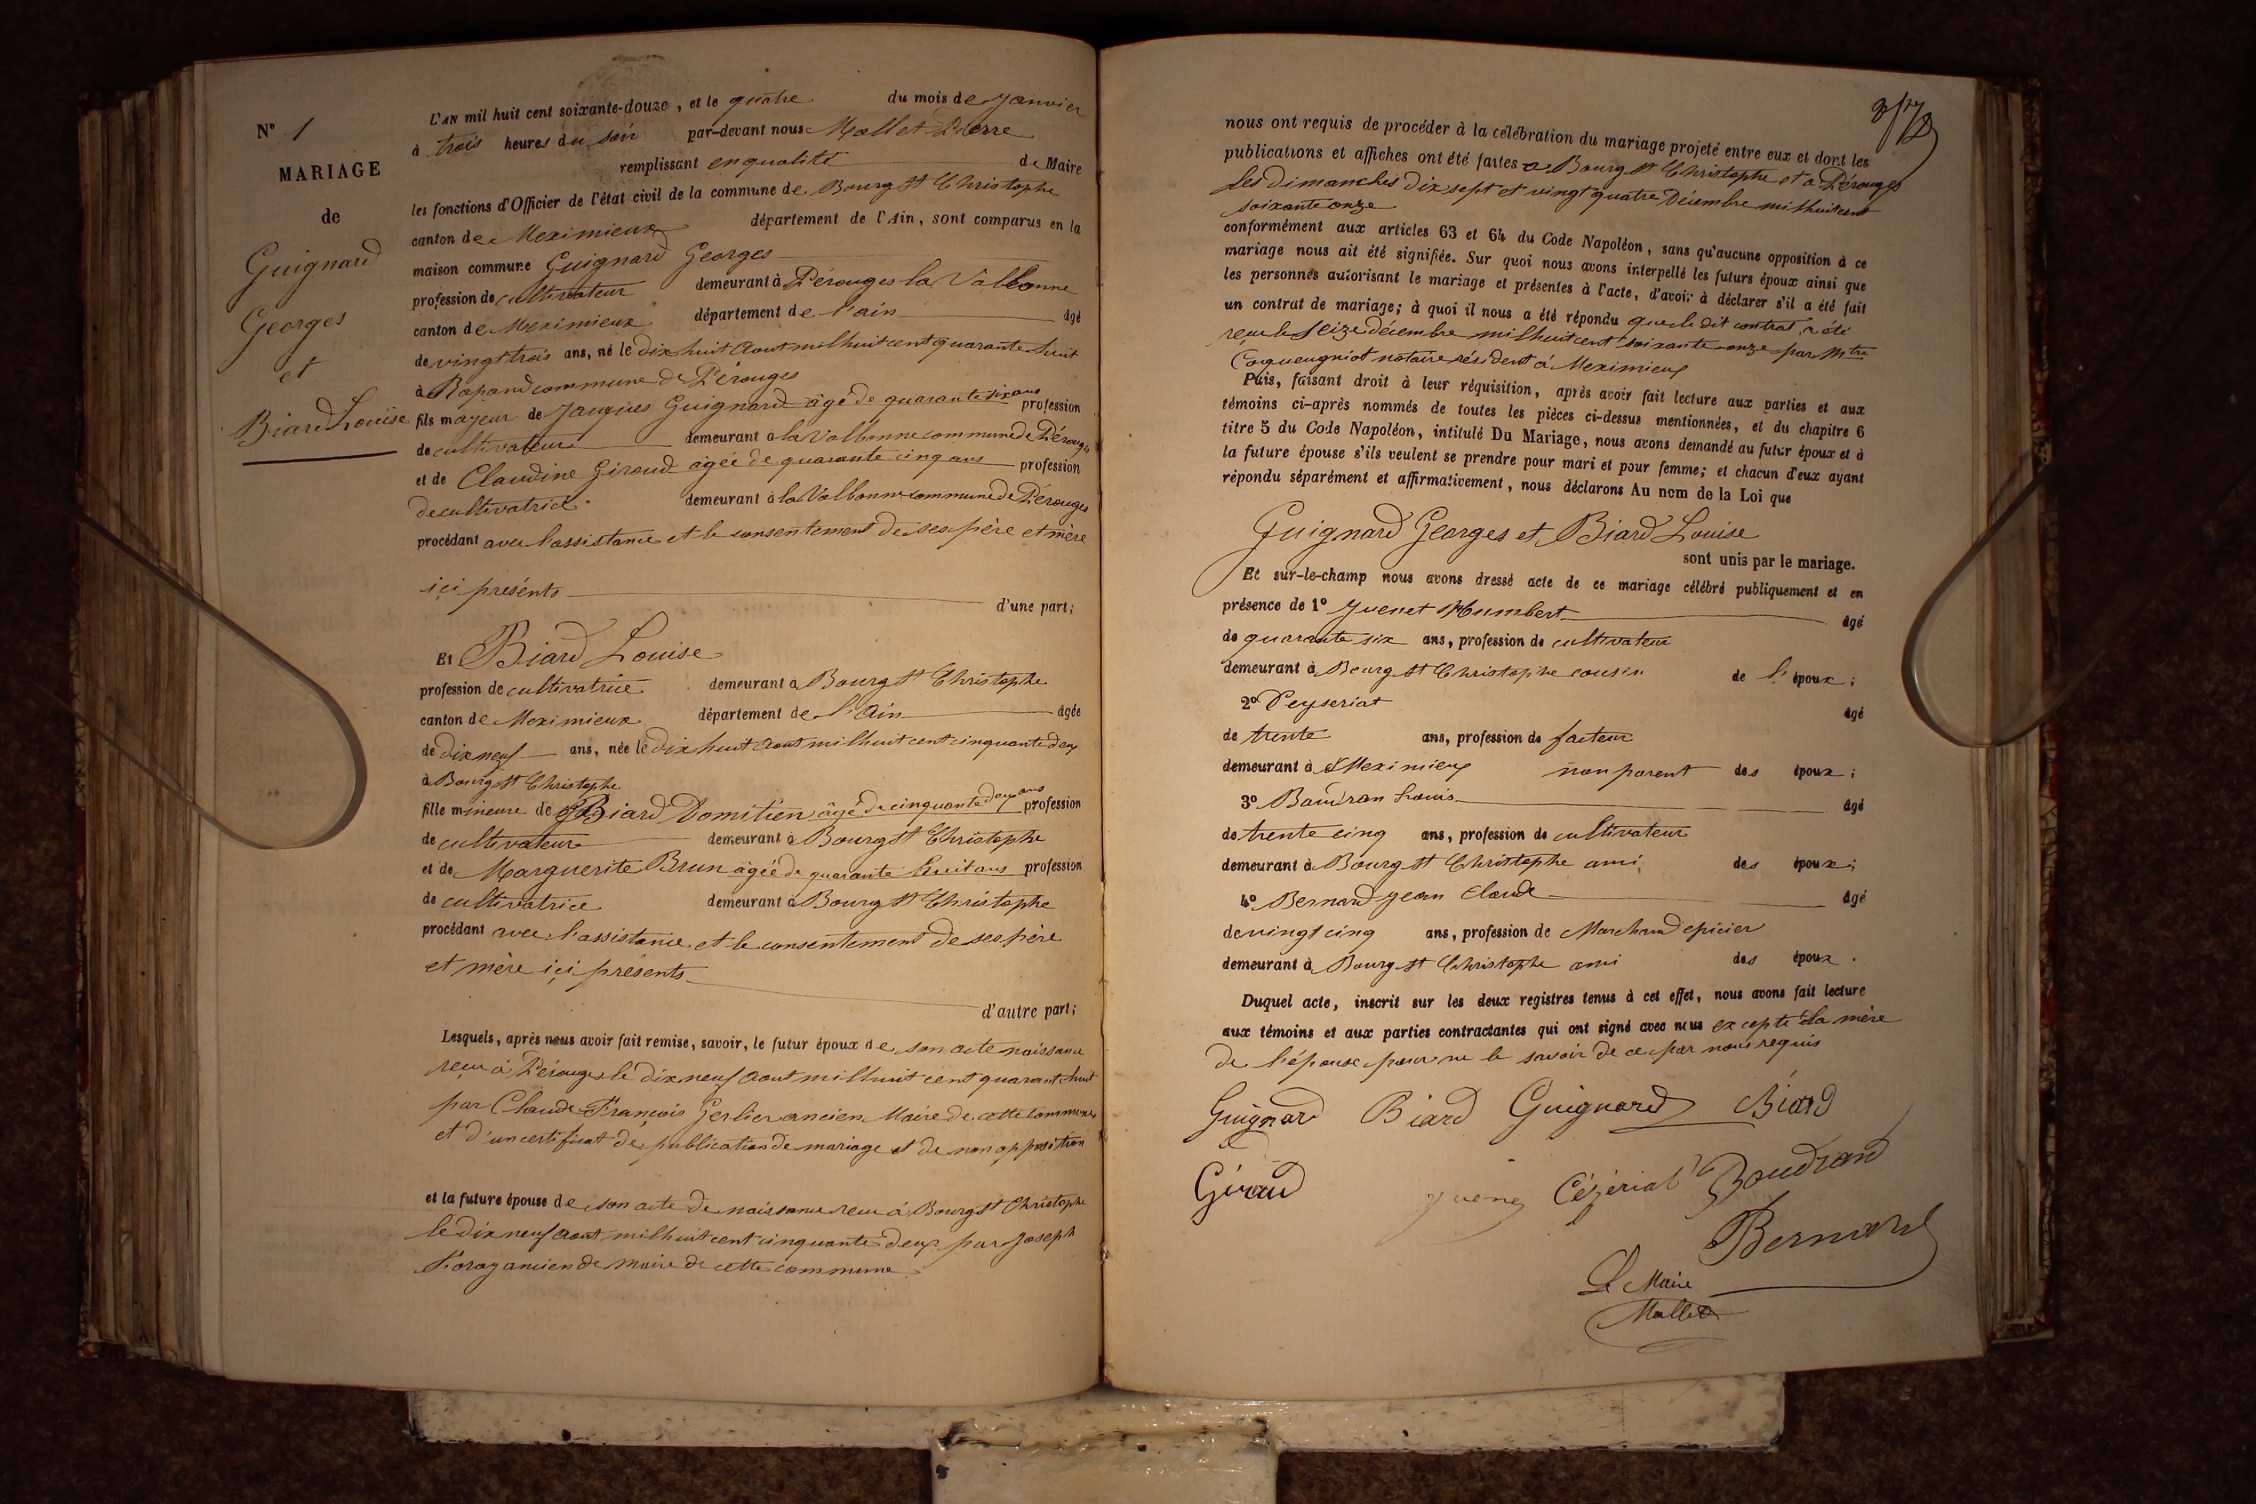 N° 1
MARIAGE
de
Guignard
Georges
et
Biard Louise
L'AN mil huit cent soixante-douze, et le quatre du mois de Janvier
à trois heures du soir par-devant nous Mallet Pierre
remplissant en qualité de Maire
les fonctions d'Officier de l'état civil de la commune de Bourg St Christophe
canton de Meximieux département de l'Ain, sont comparus en la
maison commune Guignard Georges
profession de cultivateur demeurant à Pérouges la Valbonne
canton de Meximieux département de l'ain âgé
de vingt trois ans, né le dix huit Aout mil huit cent quarante huit
à Rapan commune de Pérouges
fils mayeur de Jacques Guignard âgé de quarante six ans profession
de cultivateur demeurant à la Valbonne commune de Pérouges
et de Claudine Giraud âgée de quarante cinq ans profession
de cultivatrice demeurant à la Valbonne commune de Pérouges
procédant avec l'assistance et le consentement de ses père et mère
içi présents d'une part;
Et Biard Louise
profession de cultivatrice demeurant à Bourg St Christophe
canton de Meximieux département de l'Ain âgée
de dix neuf ans, née le dix huit Aout mil huit cent cinquante deux
à Bourg St Christophe
fille mineure de Biard Domitien âgé de cinquante deux ans profession
de cultivateur demeurant à Bourg St Christophe
et de Marguerite Brun âgée de quarante huit ans profession
de cultivatrice demeurant à Bourg St Christophe
procédant avec l'assistance et le consentement de ses père
et mère içi présents
d'autre part;
Lesquels, après nous avoir fait remise, savoir, le futur époux de son acte naissance
reçu à Pérouges le dix neuf Aout mil huit cent quarante huit
par Claude François Gerlier ancien Maire de cette commune
et d'un certificat de publication de mariage et de non opposition
et la future épouse de son acte de naissance reçu à Bourg St Christophe
le dix neuf Aout mil huit cent cinquante deux par Joseph
ancien de maire de cette commune
nous ont requis de procéder à la célébration du mariage projeté entre eux et dont les
publications et affiches ont été faites à Bourg St Christophe et à Pérouges
les dimanches dix sept et vingt quatre Décembre mil huit cent
soixante onze
conformément aux articles 63 et 64 du Code Napoléon, sans qu'aucune opposition à ce
mariage nous ait été signifiée. Sur quoi nous avons interpellé les futurs époux ainsi que
les personnes autorisant le mariage et présentes à l'acte, d'avoir à déclarer s'il a été fait
un contrat de mariage; à quoi il nous a été répondu que le dit contrat a été
reçu le seize décembre mil huit cent soixante onze par Mtre
Coqueugniot notaire résident à Meximieux
Puis, faisant droit à leur réquisition, après avoir fait lecture aux parties et aux
témoins ci-après nommés de toutes les pièces ci-dessus mentionnées, et du chapitre 6
titre 5 du Code Napoléon, intitulé Du Mariage, nous avons demandé au futur époux et à
la future épouse s'ils veulent se prendre pour mari et pour femme; et chacun d'eux ayant
répondu séparément et affirmativement, nous déclarons Au nom de la Loi que
Guignard Georges et Biard Louise
sont unis par le mariage.
Et sur-le-champ nous avons dressé acte de ce mariage célébré publiquement et en
présence de 1° Juenet Humbert âgé
de quarante six ans, profession de cultivateur
demeurant à Bourg St Christophe cousin de l'époux;
2° Peyseriat âgé
de trente ans, profession de facteur
demeurant à Meximieux non parent des époux;
3° Baudran Louis âgé
de trente cinq ans, profession de cultivateur
demeurant à Bourg St Christophe ami des époux;
4° Bernard Jean Claude âgé
de vingt cinq ans, profession de Marchand épicier
demeurant à Bourg St Christophe ami des époux.
Duquel acte, inscrit sur les deux registres tenus à cet effet, nous avons fait lecture
aux témoins et aux parties contractantes qui ont signé avec nous excepté la mère
de l'épouse pour ne le savoir de ce par nous requis
Guignard Biard Guignard Biard
Giraud Juene Cézériat Boudrand
Bernard
Le Maire
Mallet